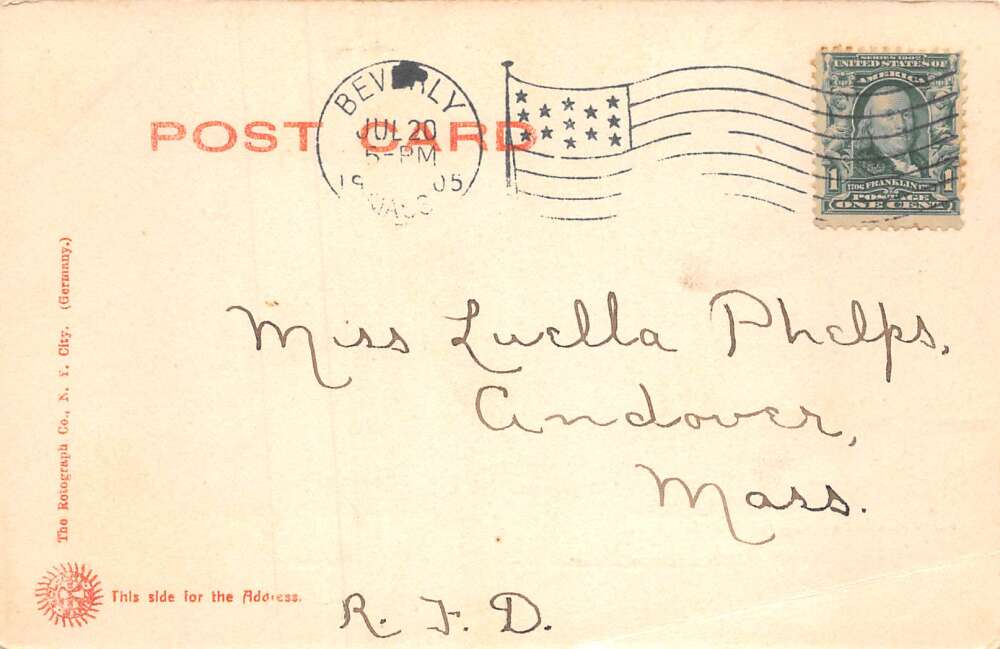 POST CARD
BEVERLY
JUL 20
5-PM
1905
MASS
SERIES 1902
UNITED STATES OF
AMERICA
1 1706 FRANKLIN 1
POSTAGE
ONE CENT
Miss Luella Phelps,
Andover,
Mass.
R. F. D.
The Rotograph Co., N. Y. City. (Germany.)
This side for the Address.